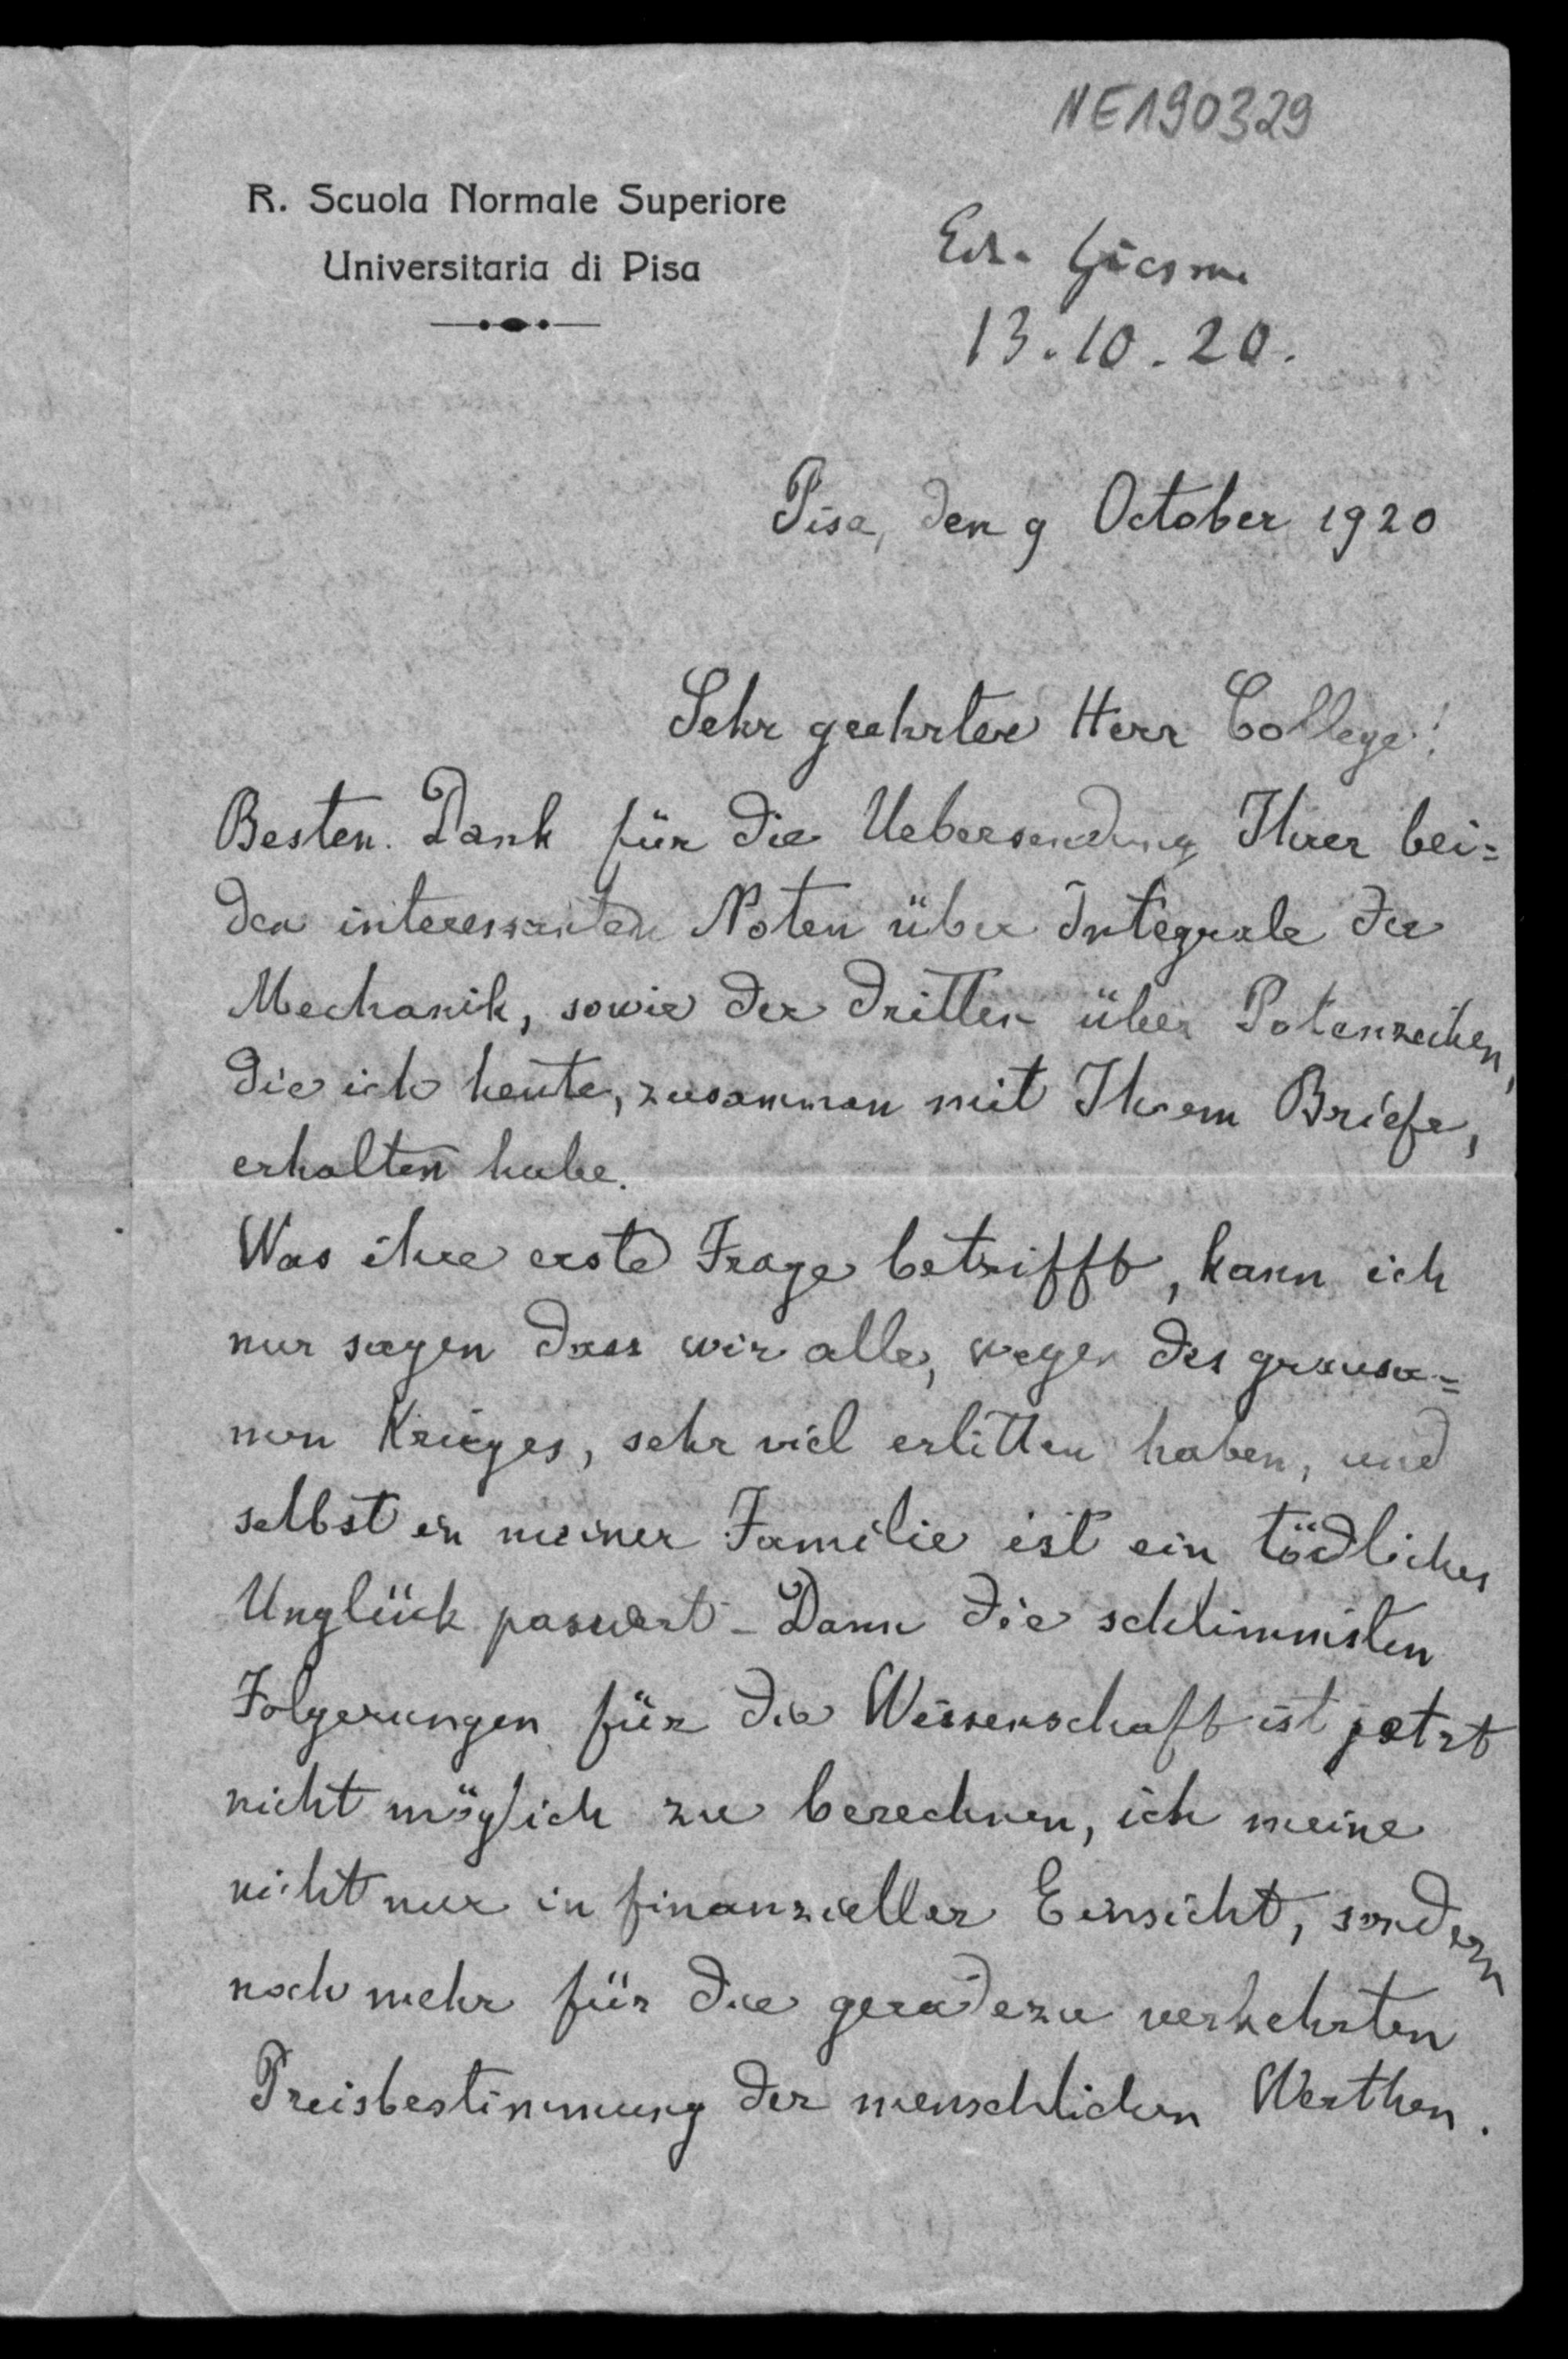 NE190329
R. Scuola Normale Superiore
Universitaria di Pisa
13.10.20.
Pisa, den 9 October 1920
Sehr geehrter Herr College!
Besten Dank für die Uebersendung Ihrer bei=
den interessanten Noten über Integrale der
Mechanik, sowie der dritten über Potenzreihen,
die ich heute, zusammen mit Ihrem Briefe,
erhalten habe.
Was ihre erste Frage betrifft, kann ich
nur sagen dass wir alle, wegen des grausa=
men Krieges, sehr viel erlitten haben, und
selbst in meiner Familie ist ein tödliches
Unglück passiert - Dann die schlimmsten
Folgerungen für die Wissenschaft ist jetzt
nicht möglich zu berechnen, ich meine
nicht nur in finanzieller Einsicht, sondern
noch mehr für die geradezu verkehrten
Preisbestimmung der menschlichen Werthen.